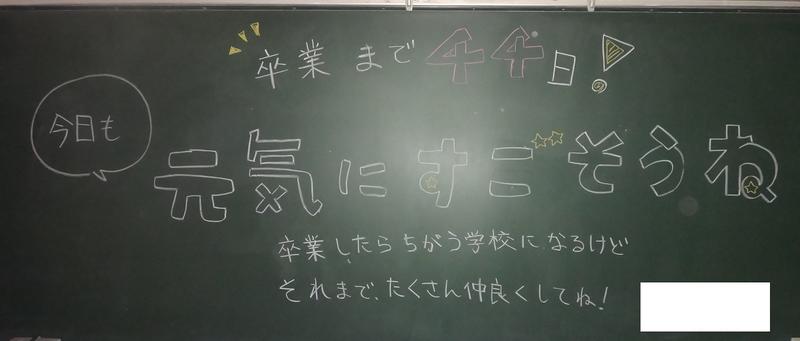 卒業まで44日!
今日も
元気にすごそうね
卒業したらちがう学校になるけど
それまで、たくさん仲良くしてね!